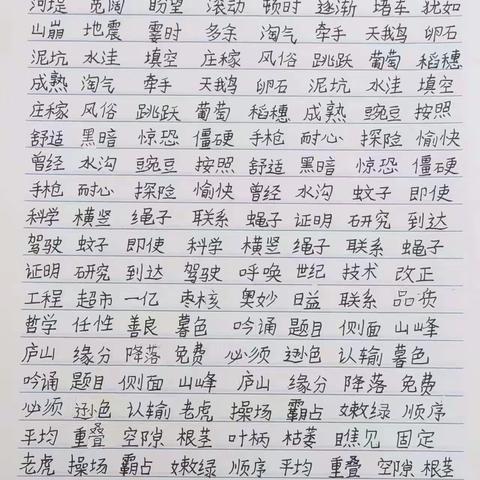 河堤 宽阔 盼望 滚动 顿时 逐渐 堵车 犹如
山崩 地震 霎时 多余 淘气 牵手 天鹅 卵石
泥坑 水洼 填空 庄稼 风俗 跳跃 葡萄 稻穗
成熟 淘气 牵手 天鹅 卵石 泥坑 水洼 填空
庄稼 风俗 跳跃 葡萄 稻穗 成熟 豌豆 按照
舒适 黑暗 惊恐 僵硬 手枪 耐心 探险 愉快
曾经 水沟 豌豆 按照 舒适 黑暗 惊恐 僵硬
手枪 耐心 探险 愉快 曾经 水沟 蚊子 即使
科学 横竖 绳子 联系 蝇子 证明 研究 到达
驾驶 蚊子 即使 科学 横竖 绳子 联系 蝇子
证明 研究 到达 驾驶 呼唤 世纪 技术 改正
工程 超市 一亿 枣核 奥妙 日益 联系 品质
哲学 任性 善良 暮色 吟诵 题目 侧面 山峰
庐山 缘分 降落 免费 必须 逊色 认输 暮色
吟诵 题目 侧面 山峰 庐山 缘分 降落 免费
必须 逊色 认输 老虎 操场 霸占 嫩绿 顺序
平均 重叠 空隙 根茎 叶柄 枯萎 瞧见 固定
老虎 操场 霸占 嫩绿 顺序 平均 重叠 空隙 根茎